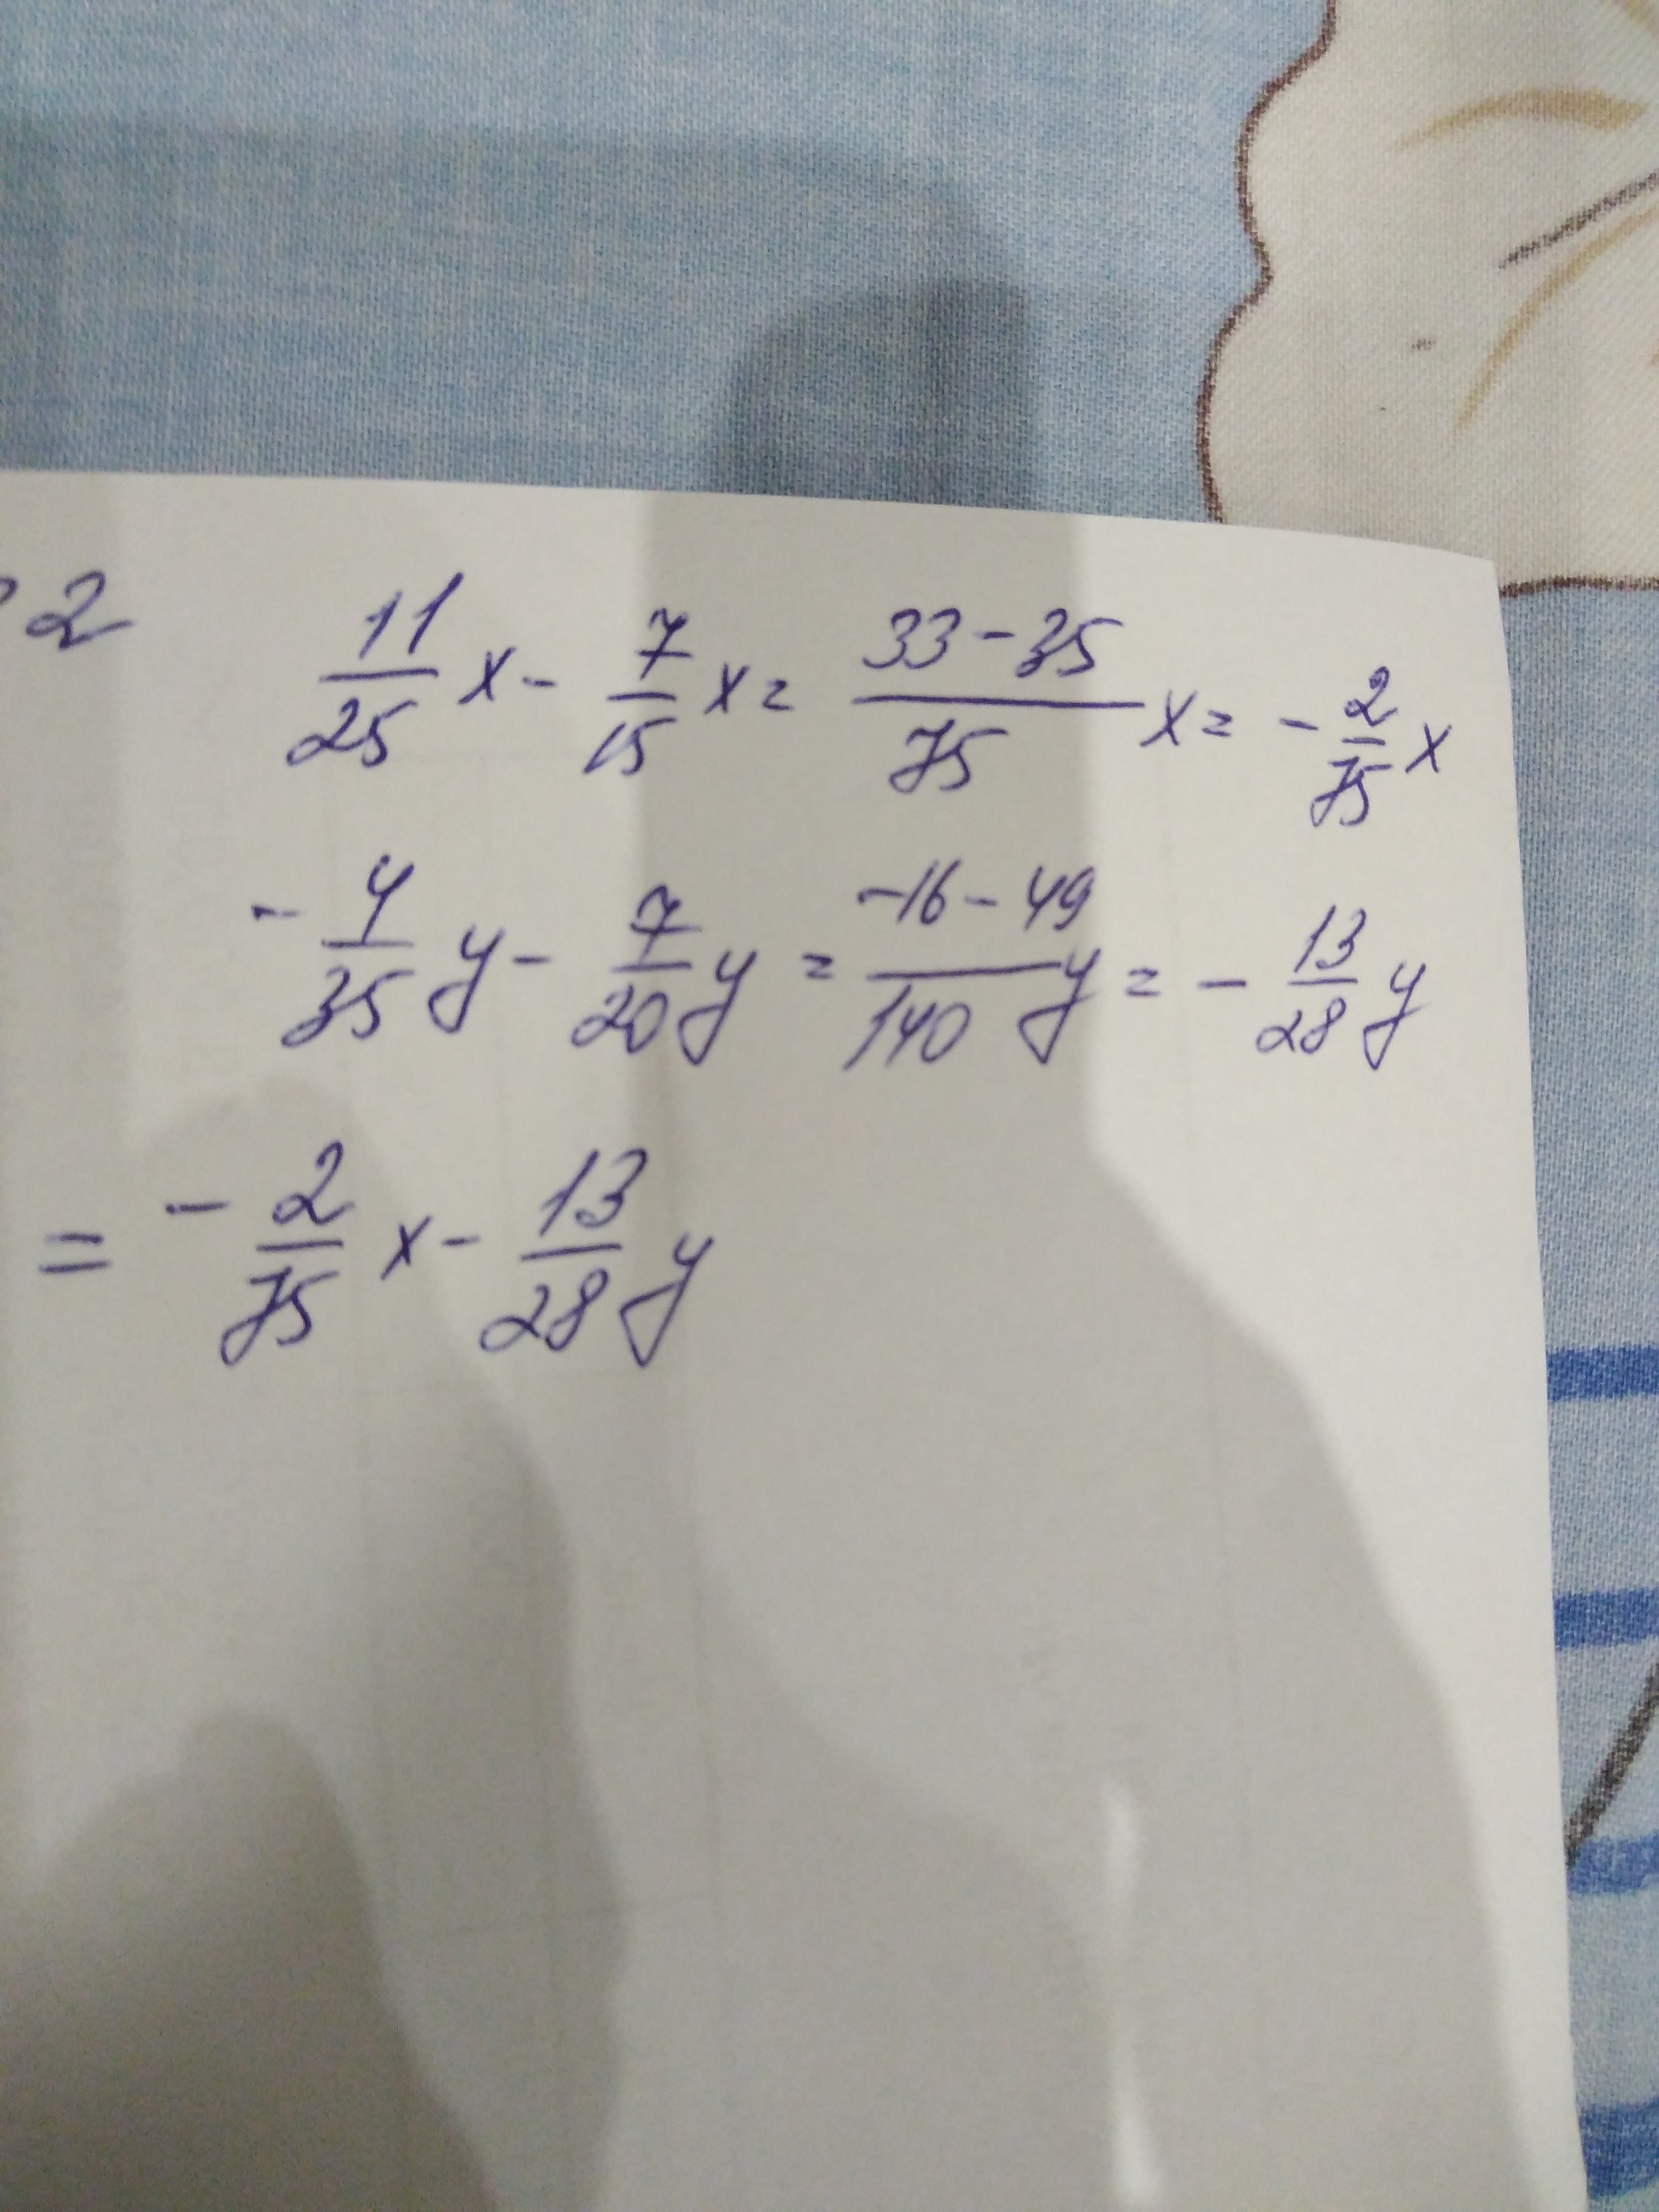 2 11/25 x - 7/15 x = 33-35/75 x = - 2/75 x
- 4/35 y - 7/20 y = -16-49/140 y = - 13/28 y
= - 2/75 x - 13/28 y